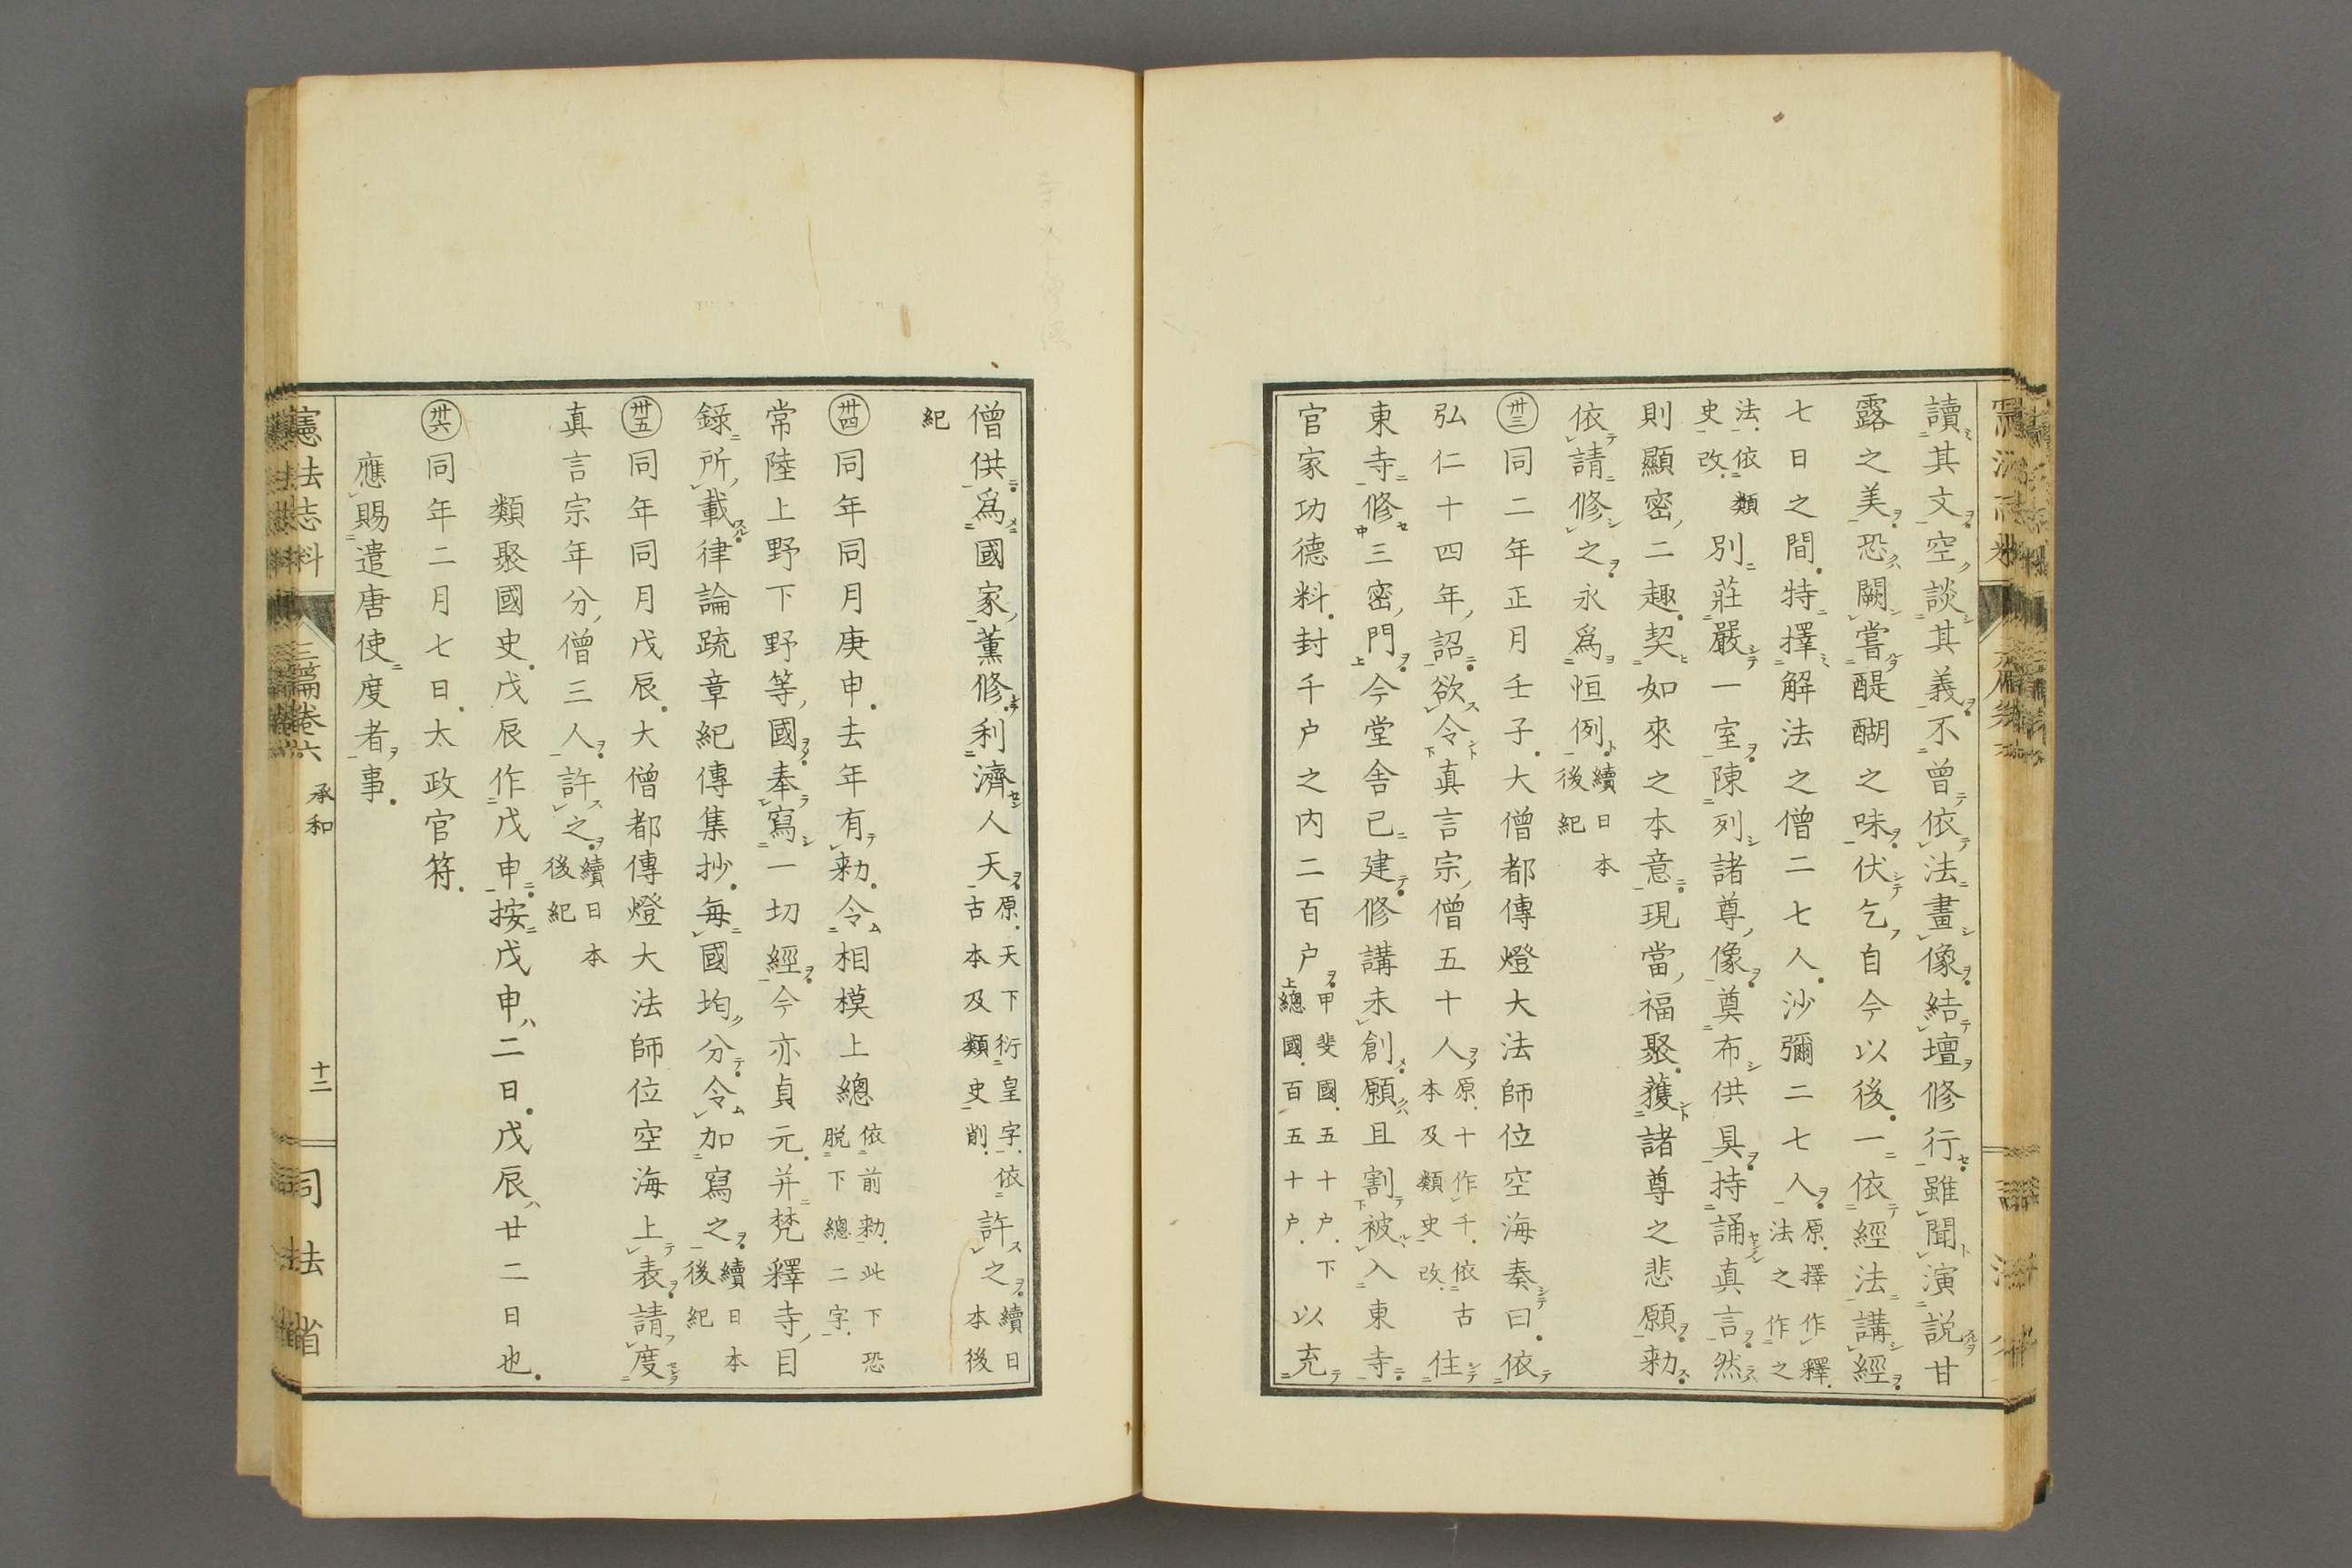 讀其文空談其義不曾依法畫像結壇修行雖聞演説甘
露之美恐闕嘗醍醐之味伏乞自今以後一依經法講經
七日之間特擇解法之僧二七人沙彌二七人原擇作釋法之作之
法依類史改別莊嚴一室陳列諸尊像奠布供具持誦真言然
則顯密二趣契如來之本意現當福聚獲諸尊之悲願勑
依請修之永爲恒例續日本後紀
卅三同二年正月壬子大僧都傳燈大法師位空海奏曰依
弘仁十四年詔欲令真言宗僧五十人原十作千依古本及類史改住
東寺修三密門今堂舍已建修講未創願且割被入東寺
官家功德料封千户之内二百户甲斐國五十户下上總國百五十户以充
僧供爲國家薫修利濟人天原天下衍皇字依古本及類史削許之續日本後
紀
卅四同年同月庚申去年有勑令相模上總依前勑此下恐脱下總二字
常陸上野下野等國奉寫一切經今亦貞元并梵釋寺目
錄所載律論疏章紀傳集抄每國均分令加寫之續日本後紀
卅五同年同月戊辰大僧都傳燈大法師位空海上表請度
真言宗年分僧三人許之續日本後紀
類聚國史戊辰作戊申按戊申ハ二日戊辰ハ廿二日也
卅六同年二月七日太政官符
應賜遣唐使度者事
憲法志料 三篇卷六 承和 十二 司法省